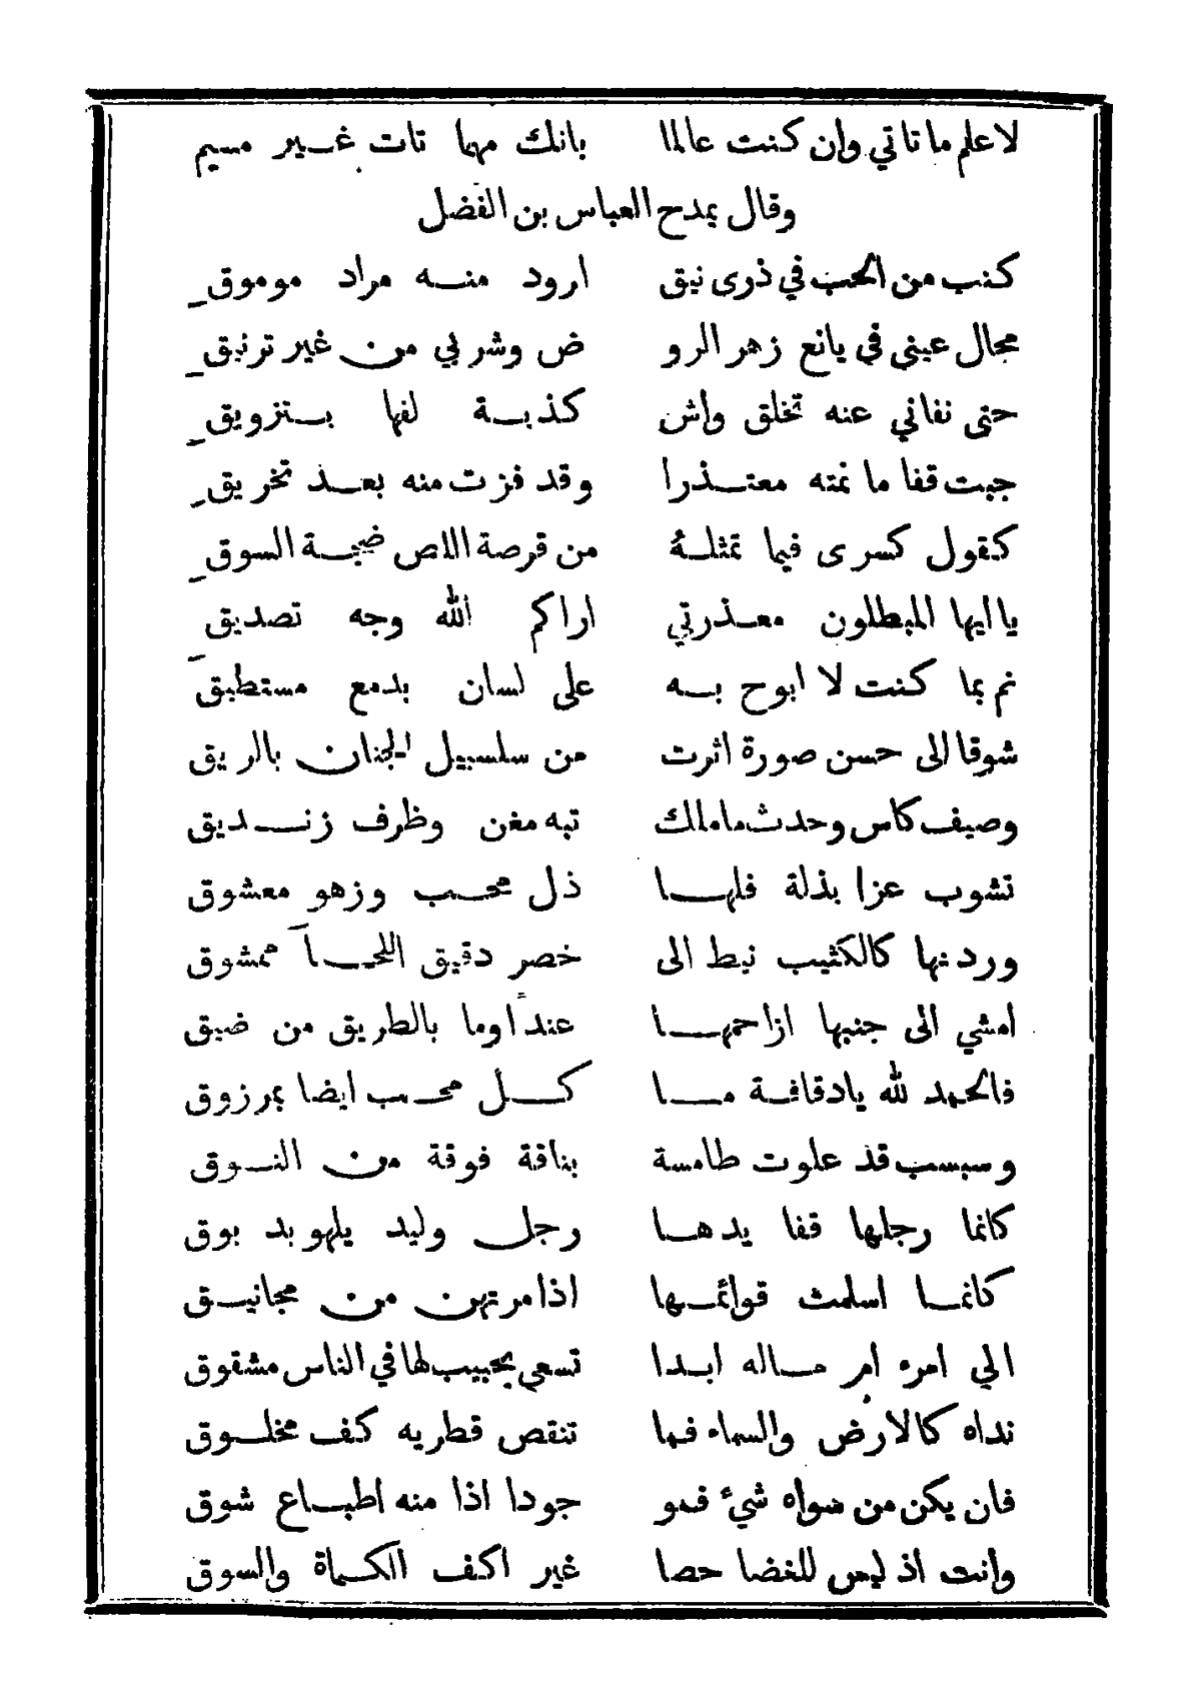 لاعلم ما تاتي وان كنت عالما بانك مهما تات غير مسيم
وقال يمدح العباس بن الفضل
كنب من الحب في ذرى نيق ارود منه مراد موموق
مجال عيني في يانع زهر الرو ض وشربي من غير ترنيق
حتى نفاني عنه تخلق واش كذبة لفها بتزويق
جبت قفا ما نمته معتذرا وقد فزت منه بعد تخريق
كقول كسرى فيما تمثله من قرصة اللص ضجة السوق
يا ايها المبطلون معذرتي اراكم الله وجه تصديق
نم بما كنت لا ابوح به على لسان بدمع مستطيق
شوقا الى حسن صورة اثرت من سلسبيل الجنان بالريق
وصيف كاس وحدث ما ملك تيه مغن وظرف زنديق
تشوب عزا بذلة فلها ذل محب وزهو معشوق
وردنها كالكثيب نيط الى خصر دقيق اللحاَ ممشوق
امشي الى جنبها ازاحمها عنداً وما بالطريق من ضيق
فالحمد لله يا دقافة ما كل محب ايضا بمرزوق
وسبسب قد علوت طامسة بناقة فوقة من النوق
كانما رجلها قفا يدها رجل وليد يلهو بدبوق
كانما اسلمت قوائمها اذا مرتهن من مجانيق
الي امره ام ماله ابدا تسعى بحبيب لها في الناس مشقوق
نداه كالارض والسماء فما تنقص قطريه كف مخلوق
فان يكن من سواه شيء فمو جودا اذا منه اطباع شوق
وانت اذ ليس للغضا حصا غير اكف الكماة والسوق